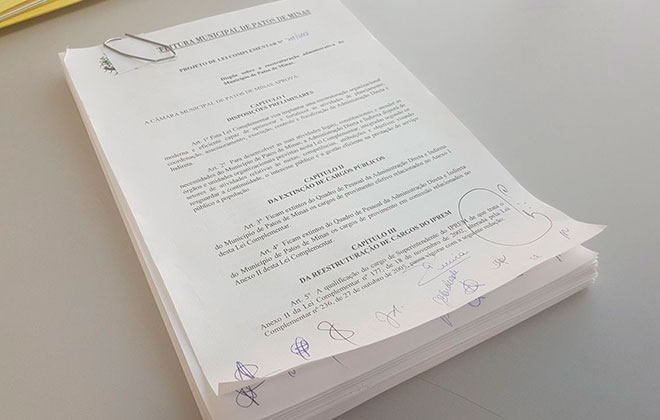 PREFEITURA MUNICIPAL DE PATOS DE MINAS
PROJETO DE LEI COMPLEMENTAR Nº
Dispõe sobre a reestruturação administrativa do
Município de Patos de Minas.
A CÂMARA MUNICIPAL DE PATOS DE MINAS APROVA:
CAPÍTULO I
DISPOSIÇÕES PRELIMINARES
Art. 1º Esta Lei Complementar visa implantar uma reestruturação organizacional
moderna e eficiente capaz de aprimorar e fortalecer as atividades de planejamento,
coordenação, assessoramento, execução, controle e fiscalização da Administração Direta e
Indireta.
Art. 2º Para desenvolver as suas atividades legais, constitucionais e atender as
necessidades do Município de Patos de Minas, a Administração Direta e Indireta disporá de
órgãos e unidades organizacionais previstas nesta Lei Complementar, integradas segundo os
setores de atividades relativas às metas, competências, atribuições e objetivos, visando
resguardar a continuidade, o interesse público e a gestão eficiente na prestação do serviço
público à população.
CAPÍTULO II
DA EXTINÇÃO DE CARGOS PÚBLICOS
Art. 3º Ficam extintos do Quadro de Pessoal da Administração Direta e Indireta
do Município de Patos de Minas os cargos de provimento efetivo relacionados no Anexo I
desta Lei Complementar.
Art. 4º Ficam extintos do Quadro de Pessoal da Administração Direta e Indireta
do Município de Patos de Minas os cargos de provimento em comissão relacionados no
Anexo II desta Lei Complementar.
CAPÍTULO III
DA REESTRUTURAÇÃO DE CARGOS DO IPREM
Art. 5º A qualificação do cargo de Superintendente do IPREM de que trata o
Anexo II da Lei Complementar nº 177, de 18 de novembro de 2002, alterada pela Lei
Complementar nº 236, de 27 de outubro de 2005, passa vigorar com a seguinte redação: